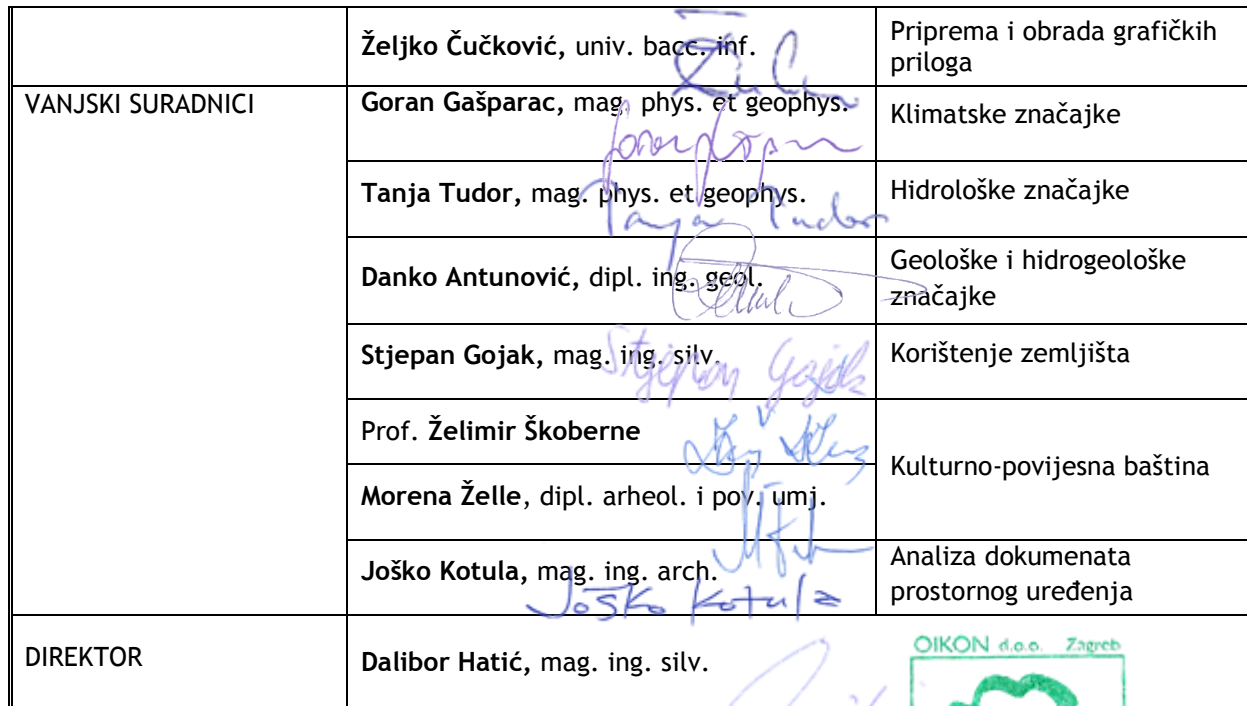 Željko Čučković, univ. bacc. inf.
Priprema i obrada grafičkih
priloga
VANJSKI SURADNICI
Goran Gašparac, mag. phys. et geophys.
Klimatske značajke
Tanja Tudor, mag. phys. et geophys.
Hidrološke značajke
Tanja Tudor
Danko Antunović, dipl. ing. geol.
Geološke i hidrogeološke
značajke
Stjepan Gojak, mag. ing. silv.
Korištenje zemljišta
Stjepan Gojak
Prof. Želimir Škoberne
Kulturno-povijesna baština
Morena Želle, dipl. arheol. i pov. umj.
Joško Kotula, mag. ing. arch.
Analiza dokumenata
prostornog uređenja
Joško Kotula
DIREKTOR
Dalibor Hatić, mag. ing. silv.
OIKON d.o.o. Zagreb